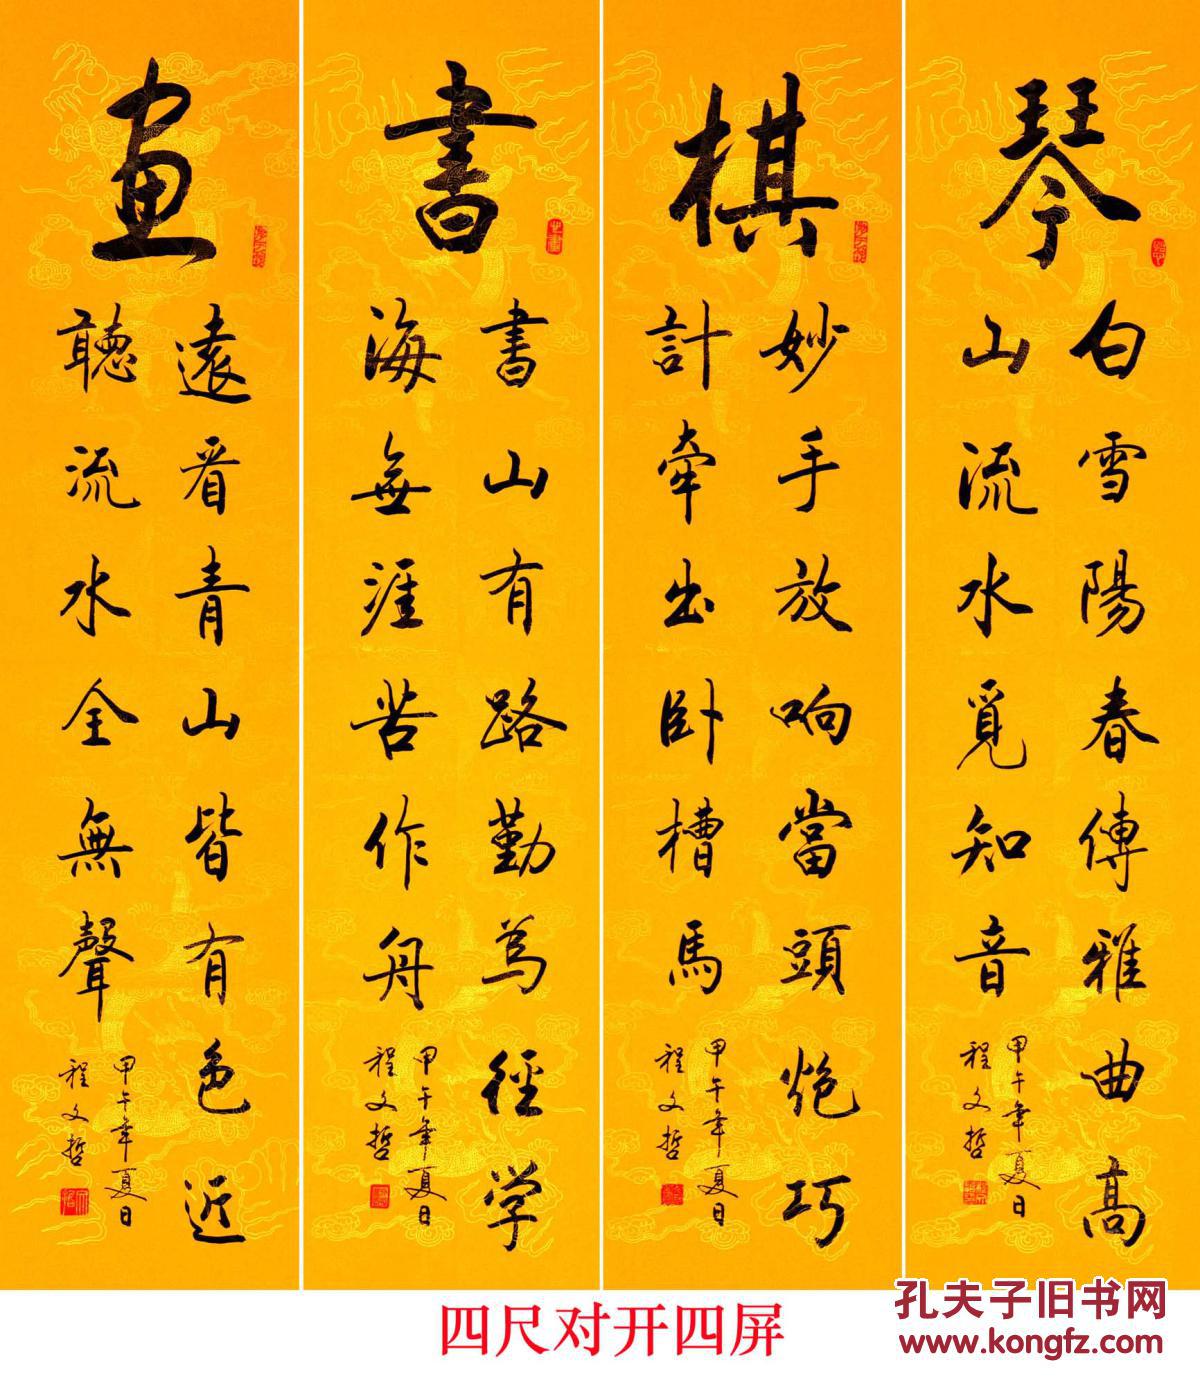 琴
白雪陽春傳雅曲高
山流水覓知音
甲午年夏日
程文哲
棋
妙手放响當頭炮巧
計牽出卧槽馬
甲午年夏日
程文哲
書
書山有路勤為徑学
海無涯苦作舟
甲午年夏日
程文哲
画
遠看青山皆有色近
聽流水全無聲
甲午年夏日
程文哲
四尺对开四屏
孔夫子旧书网
www.kongfz.com